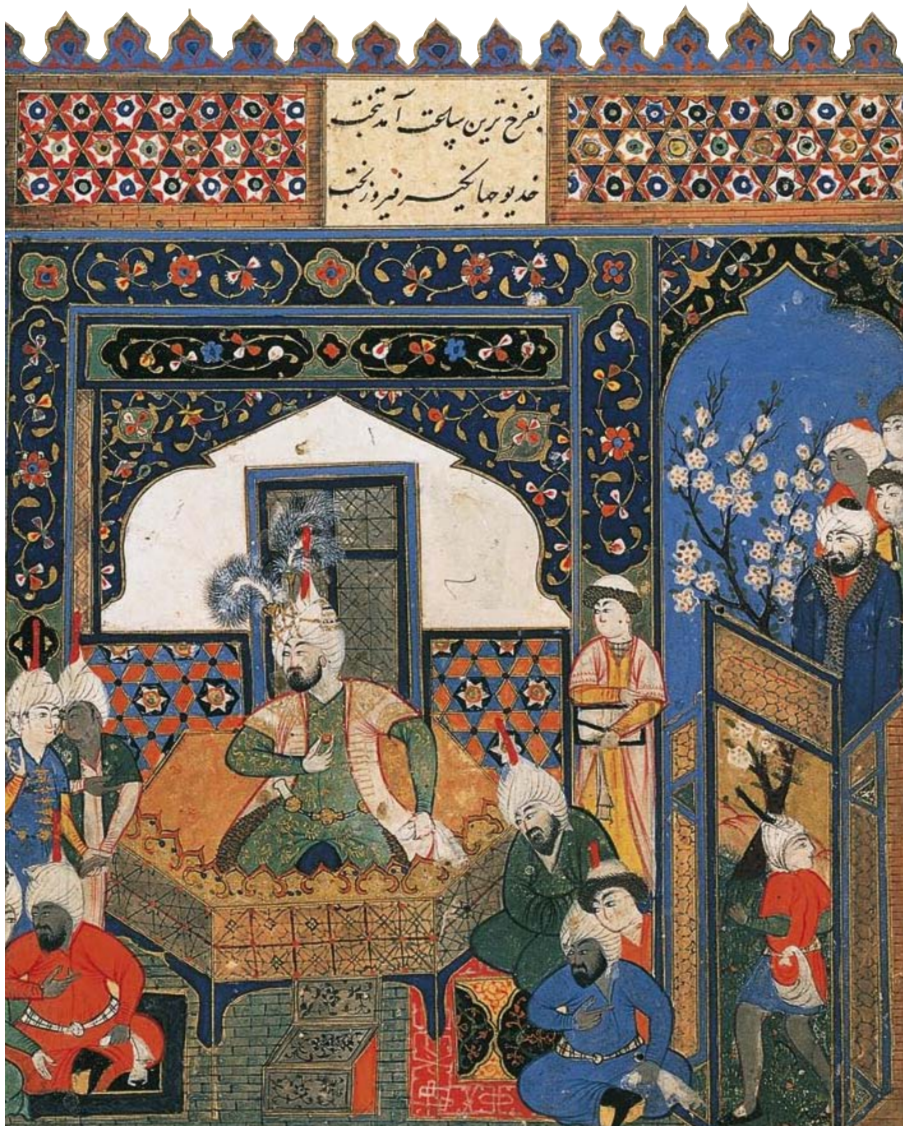 بفرخ ترین ساعت آمد بتخت
خدیو جهانگیر فیروز بخت